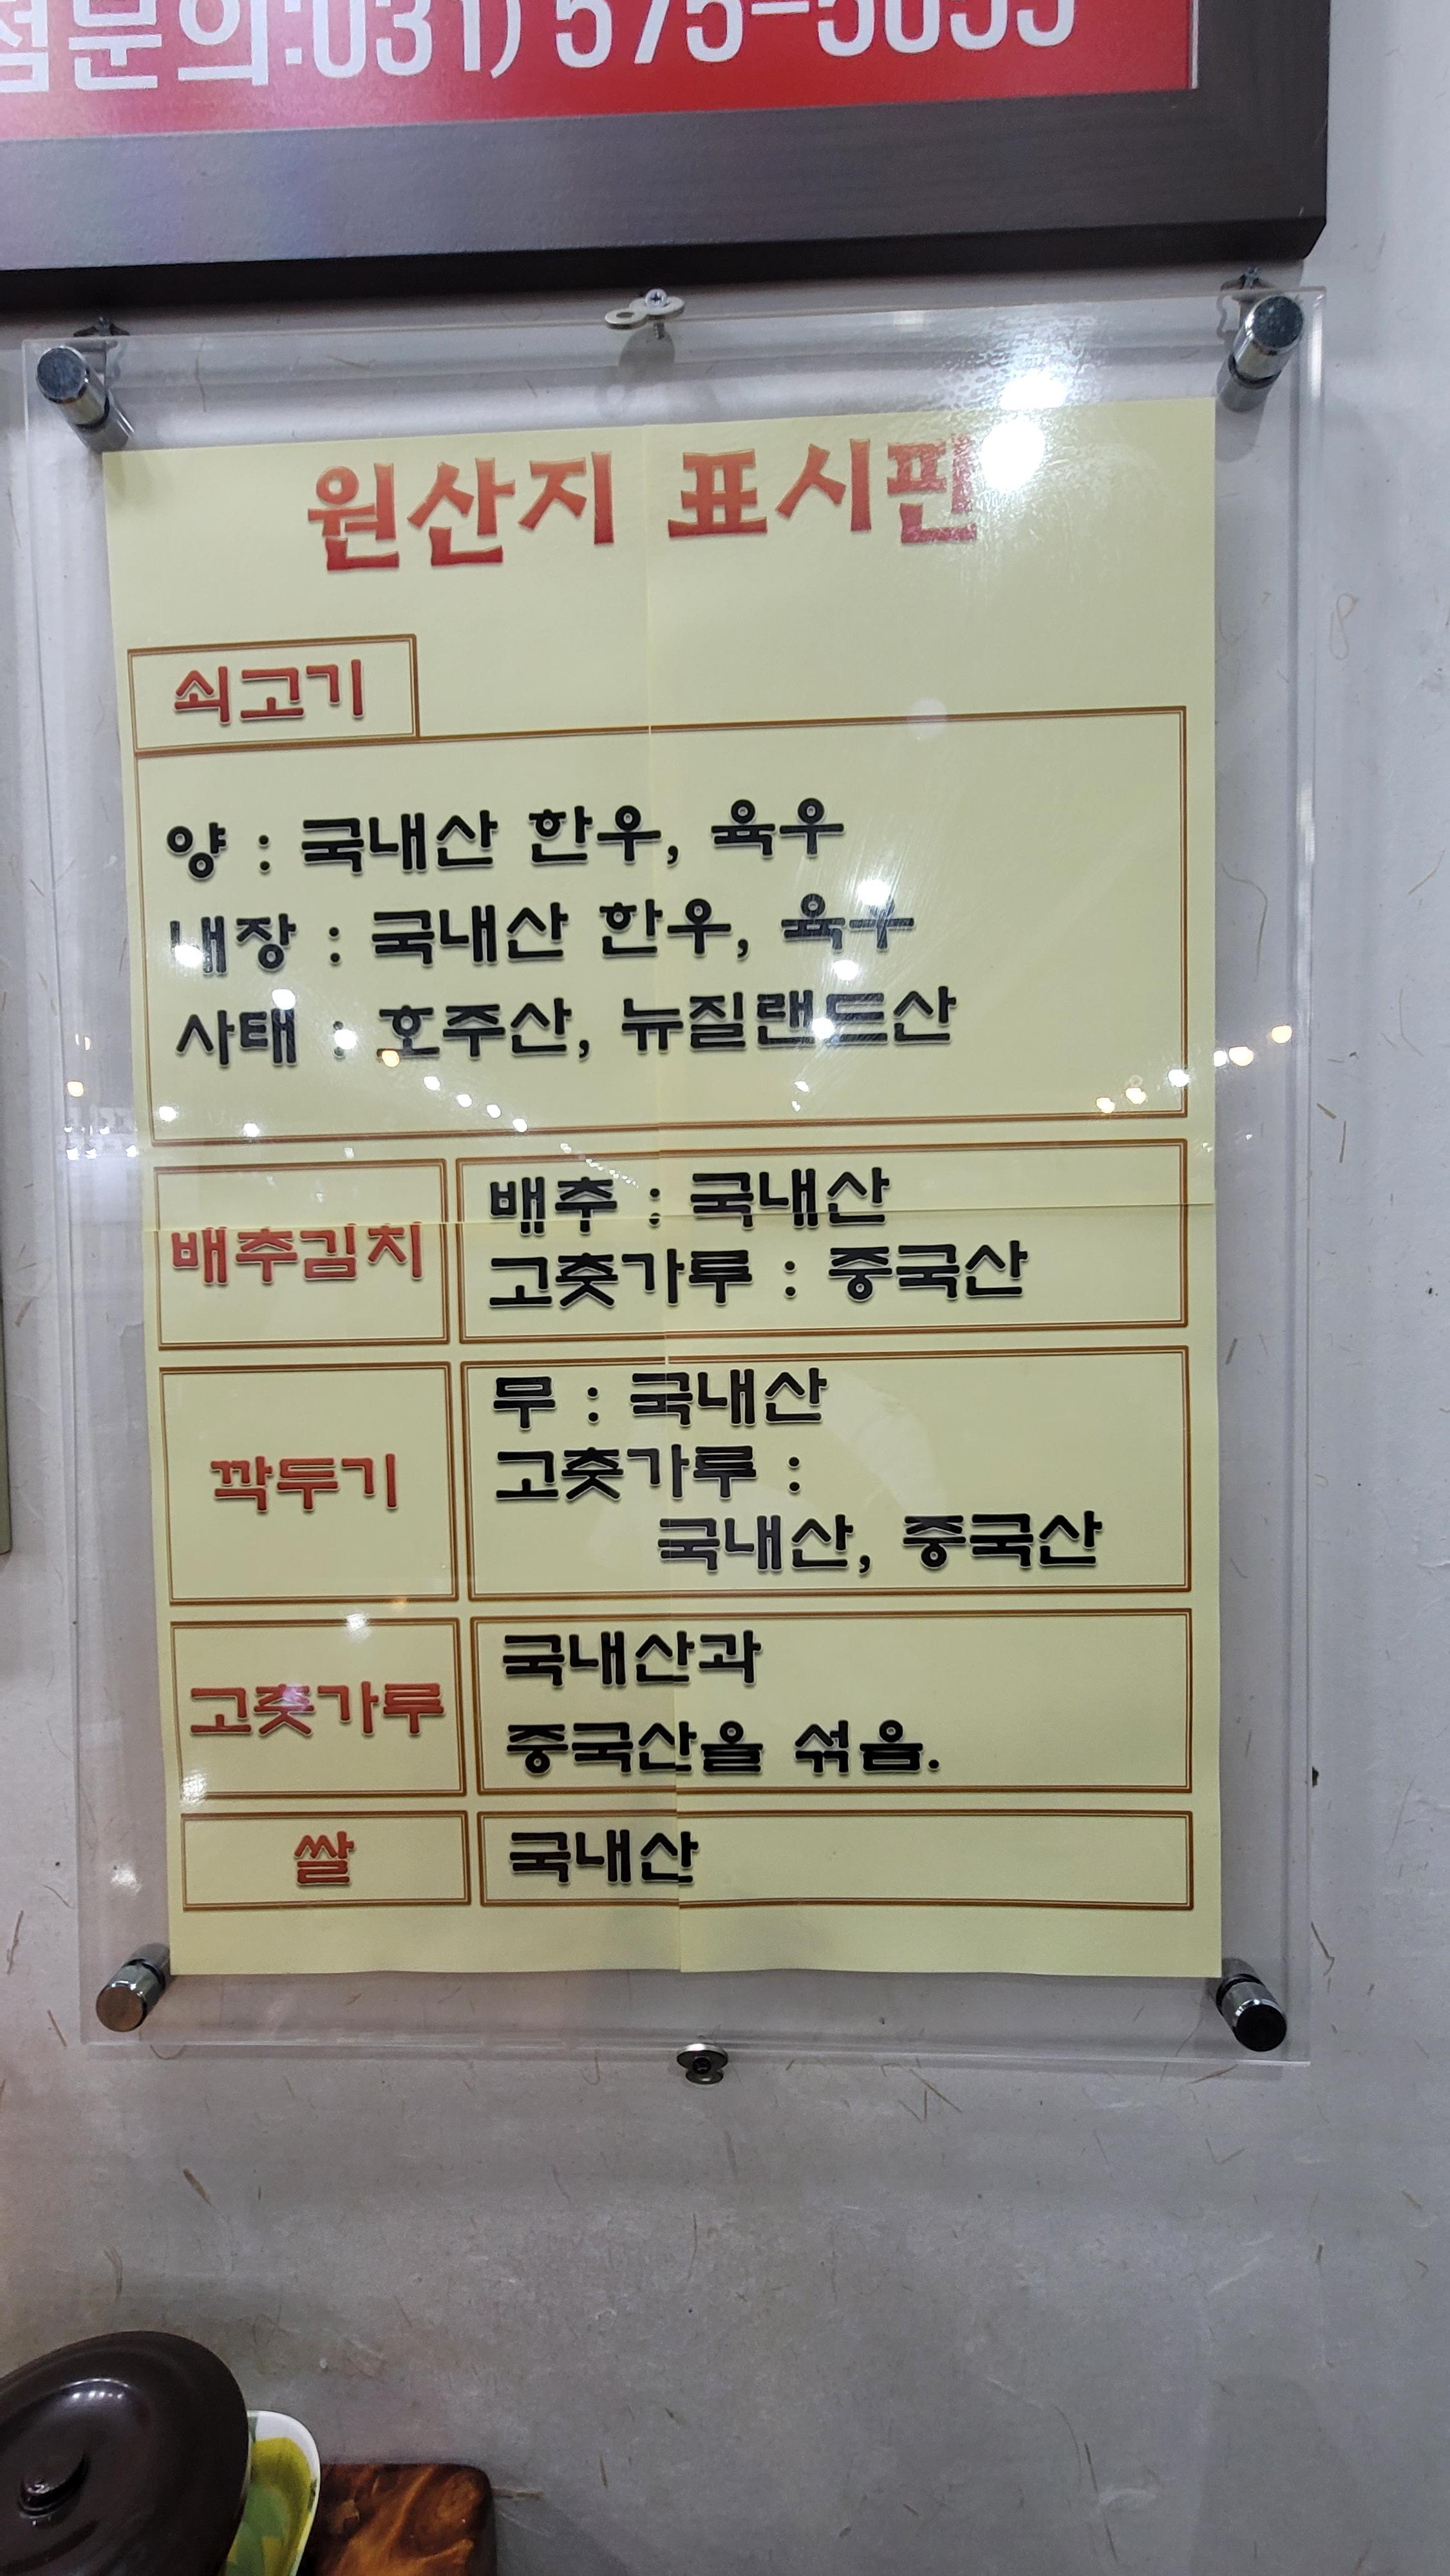 점문의:031) 575-5055
원산지 표시판
쇠고기
양 : 국내산 한우, 육우
내장 : 국내산 한우, 육우
사태 : 호주산, 뉴질랜드산
배추김치
배추 : 국내산
고춧가루 : 중국산
깍두기
무 : 국내산
고춧가루 :
국내산, 중국산
고춧가루
국내산과
중국산을 섞음.
쌀
국내산